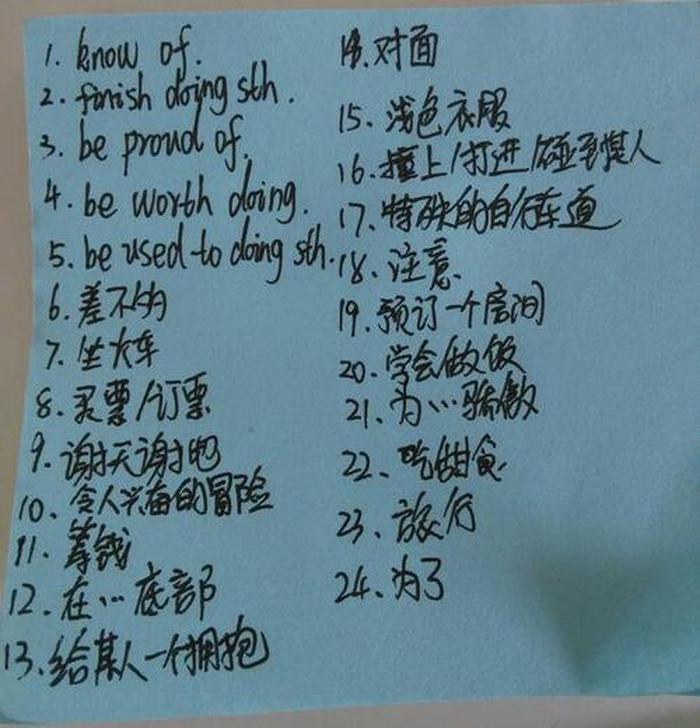 1. know of.
2. finish doing sth.
3. be proud of.
4. be worth doing.
5. be used to doing sth.
6. 差不多
7. 坐火车
8. 买票/订票
9. 谢天谢地
10. 令人兴奋的冒险
11. 筹钱
12. 在…底部
13. 给某人一个拥抱
14. 对面
15. 浅色衣服
16. 撞上/打进/碰到某人
17. 特殊的自行车道
18. 注意
19. 预订一个房间
20. 学会做饭
21. 为…骄傲
22. 吃甜食
23. 旅行
24. 为了